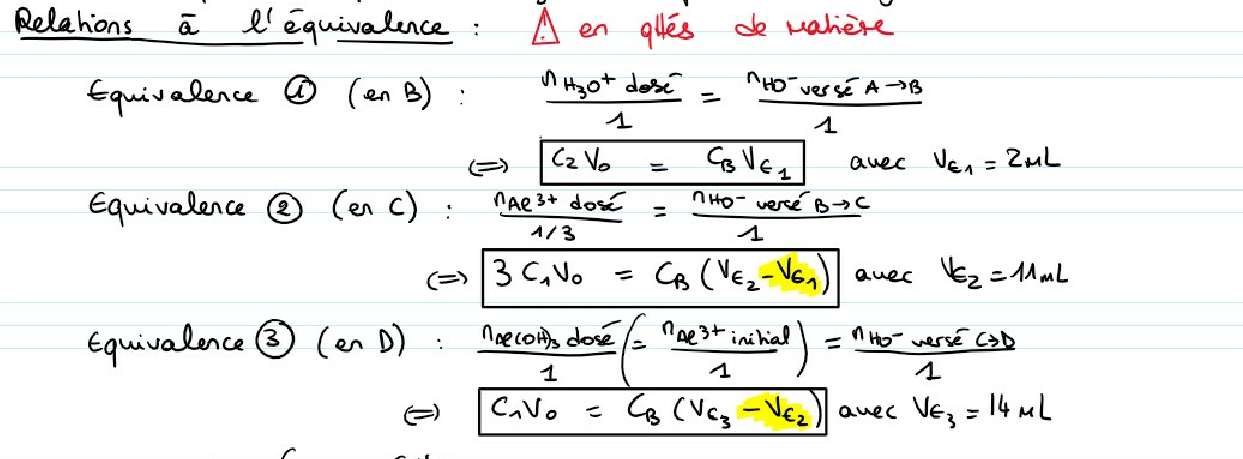 Relations à l'équivalence : ⚠ en qtés de matière
Equivalence ① (en B) : n H3O+ dosé / 1 = n HO- versé A→B / 1
⇔ C2 V0 = CB VE1 avec VE1 = 2mL
Equivalence ② (en C) : n Al3+ dosé / 1/3 = n HO- versé B→C / 1
⇔ 3 C1 V0 = CB (VE2 - VE1) avec VE2 = 11mL
Equivalence ③ (en D) : n Al(OH)3 dosé / 1 (= n Al3+ initial / 1) = n HO- versé C→D / 1
⇔ C1 V0 = CB (VE3 - VE2) avec VE3 = 14 mL